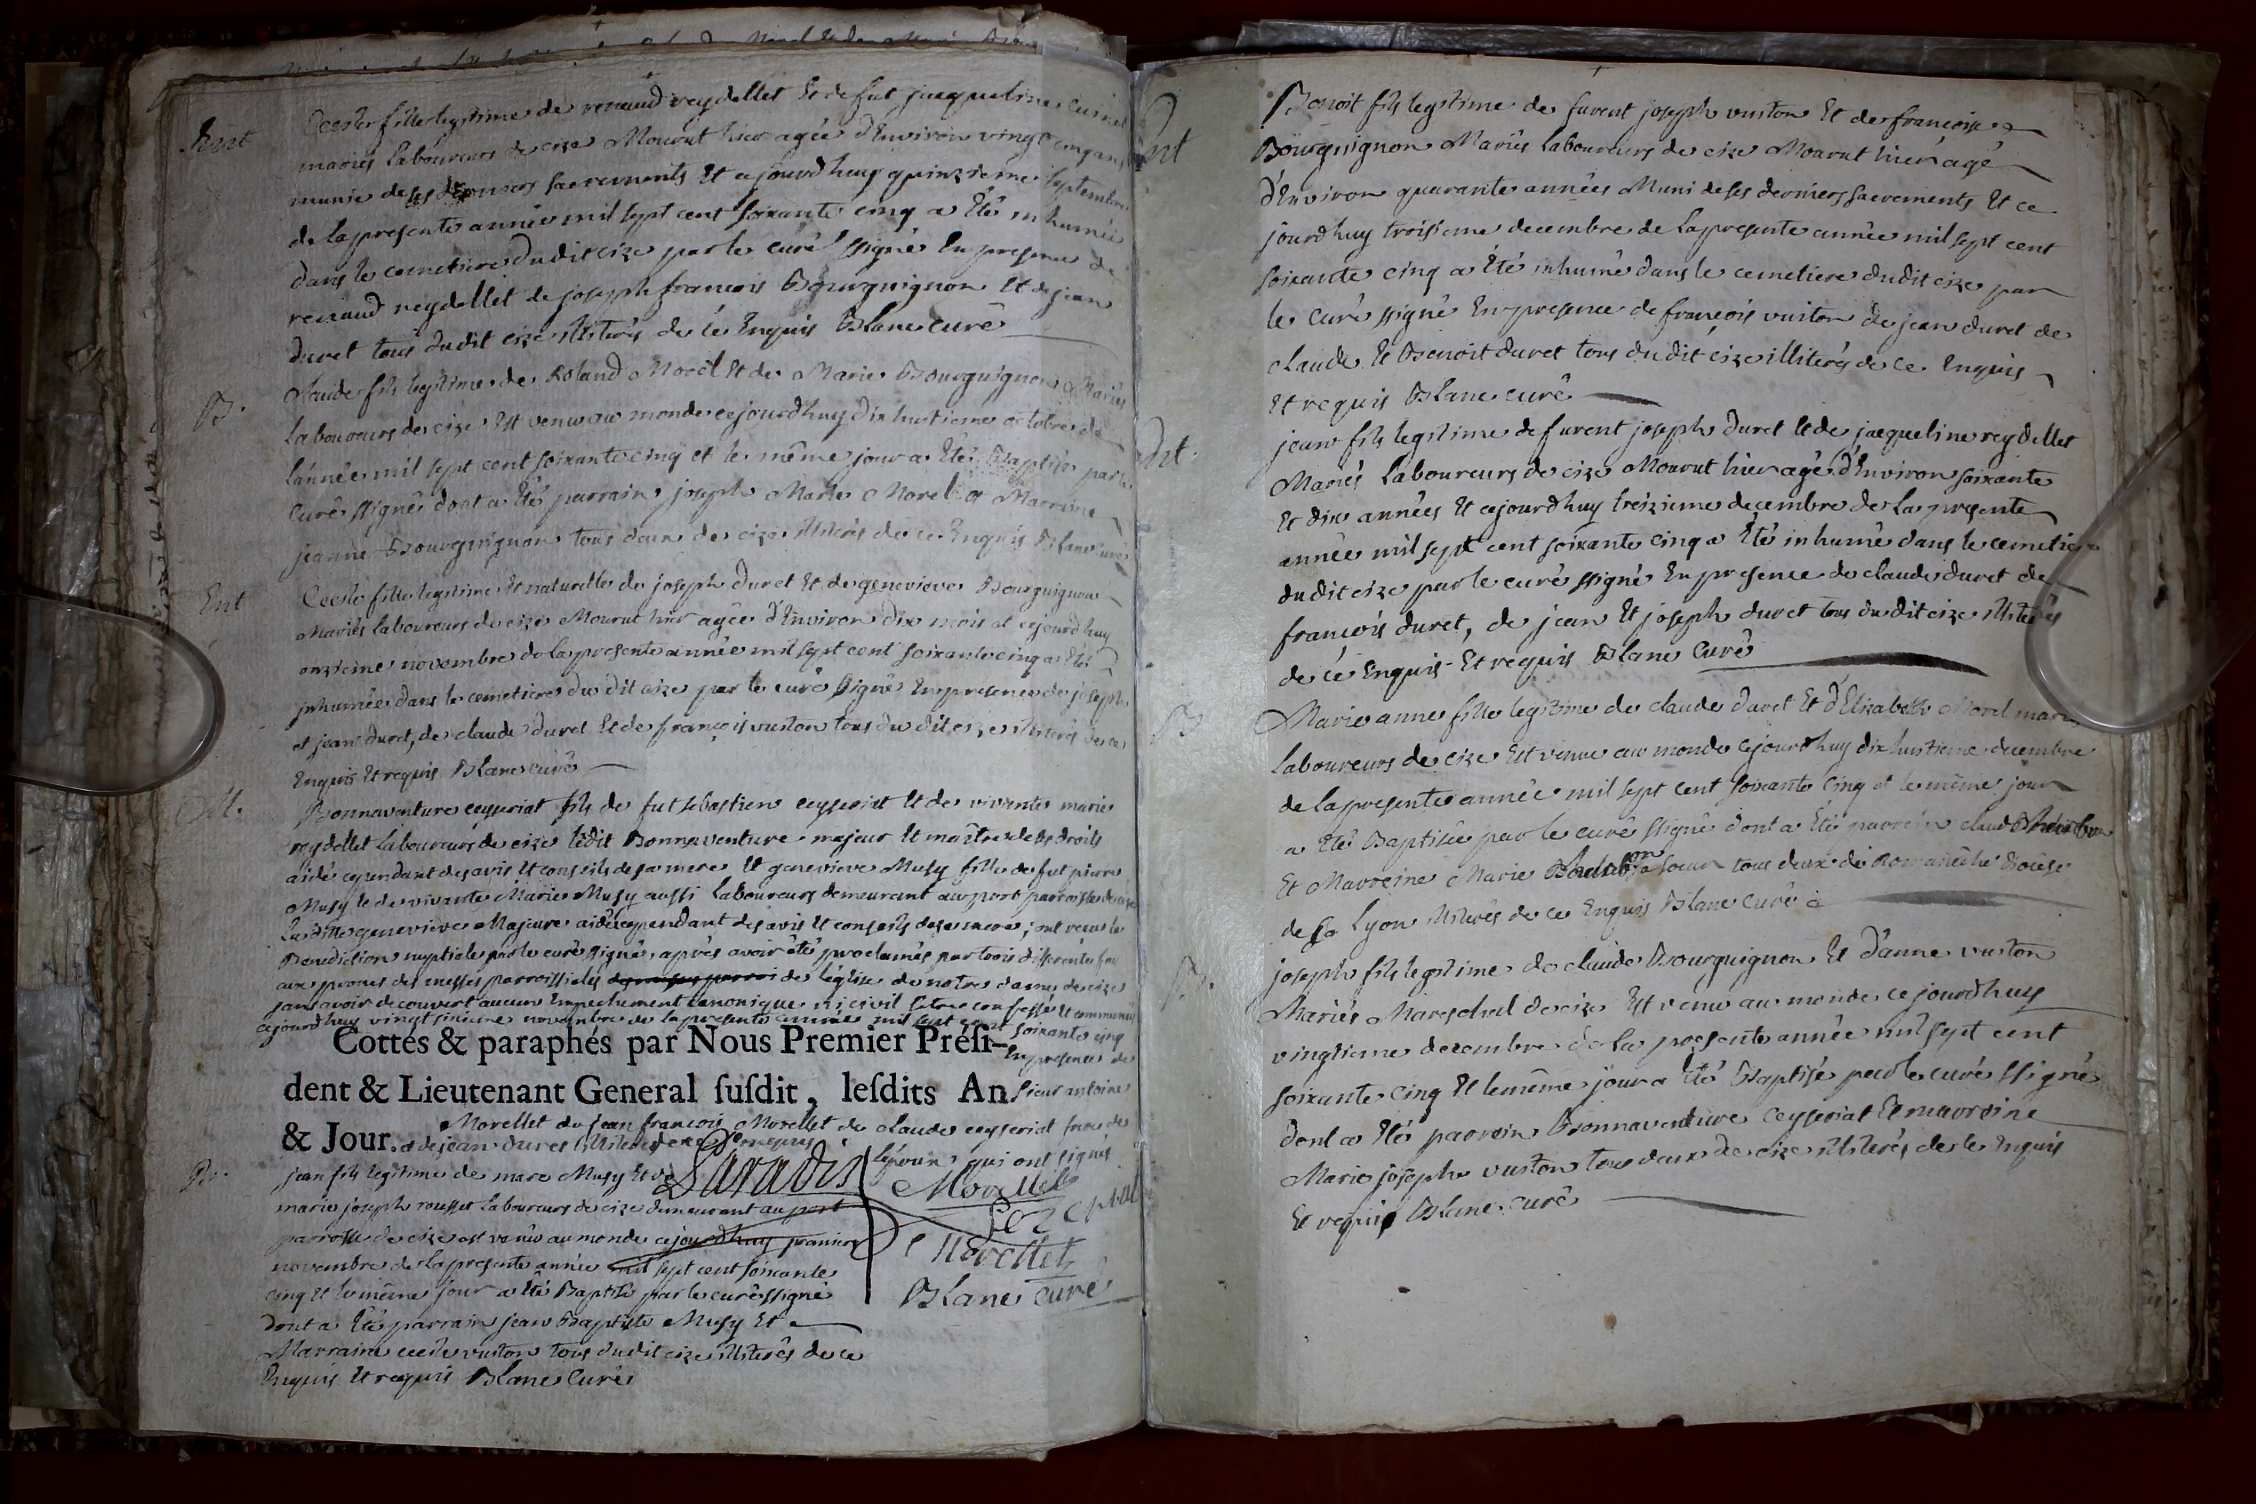 Ent
Ceesle fille legitime de renaud reydellet et de fut jacqueline cuinet
mariés laboureurs de cize Mourut hier agée d'Environ vingt cinq ans
munie de ses derniers sacrements Et cejourdhuy quinzieme septembre
de la presente année mil sept cent soixante cinq a Eté inhumée
dans le cemetiere dudit cize par le curé ssigné En presence de
renaud reydellet de joseph francois Bourguignon Et de jean
duret tous dudit cize illiterés de ce Enquis Blanc curé
B.
Claude fils legitime de Roland Morel Et de Marie Bourguignon Mariés
laboureurs de cize Est venu au monde cejourdhuy dix huitieme octobre de
l'année mil sept cent soixante cinq et le même jour a Eté Baptisé par le
Curé ssigné dont a Eté parrain joseph Marie Morel et Marraine
jeanne Bourguignon tous deux de cize illiterés de ce Enquis Blanc curé
Ent
Ceesle fille legitime Et naturelle de joseph duret Et de genevieve Bourguignon
Mariés laboureurs de cize Mourut hier agée d'Environ dix mois et cejourdhuy
onzieme novembre de la presente année mil sept cent soixante cinq a Eté
inhumée dans le cemetiere du dit cize par le curé ssigné En presence de joseph
et jean duret, de claude duret Et de françois vuiton tous du dit cize illiterés de ce
Enquis Et requis Blanc curé
M.
Bonnaventure ceyseriat fils de fut sebastien ceyseriat Et de vivante marie
reydellet Laboureurs de cize ledit Bonnaventure majeur Et maître de ses droits
aidé cependant des avis Et conseils de sa mere Et genevieve Musy fille de fut pierre
Musy et de vivante Marie Musy aussi Laboureurs demeurant au port parroisse de cize
La ditte genevieve Majeure aidée cependant des avis Et conseils de sa mere, ont recu la
Benediction nuptiale par le curé ssigné, après avoir été proclamés par trois differentes fois
aux prones des messes parroissiales de l'église de notre dame de cize
sans avoir decouvert aucun Empechement canonique ni civil s'etre confessés Et communiés
cejourdhuy vingt sixieme novembre de la presente année mil sept cent soixante cinq
Cottés & paraphés par Nous Premier Préſi-
En presence de
dent & Lieutenant General ſuſdit, leſdits An
sieur antoine
Morellet de jean francois Morellet de claude ceyseriat frere de
& Jour.
et de jean duret illiterés de ce Enquis
l'époux qui ont signés
B.
jean fils legitime de marc Musy Et de
Morellet
marie joseph rousset Laboureurs de cize demeurant au port
parroisse de cize est venu au monde cejourdhuy premier
Morellet
novembre de la presente année mil sept cent soixante
cinq Et le même jour a Eté Baptisé par le curé ssigné
Blanc curé
dont a Eté parrain jean Baptiste Musy Et
Marraine ceesle vuiton tous dudit cize illiterés de ce
Enquis Et requis Blanc Curé
Ent
Benoit fils legitime de furent joseph vuiton Et de francoise
Bourguignon Mariés Laboureurs de cize Mourut hier agé
d'Environ quarante années Muni de ses derniers sacrements Et ce
jourdhuy troisieme decembre de la presente année mil sept cent
soixante cinq a Eté inhumé dans le cemetiere dudit cize par
le Curé ssigné En presence de françois vuiton de jean duret de
claude Et Benoit duret tous du dit cize illiterés de ce Enquis
Et requis Blanc curé
Ent.
jean fils legitime de furent joseph duret Et de jacqueline reydellet
Mariés Laboureurs de cize Mourut hier agé d'Environ soixante
Et dix années Et cejourdhuy treizieme decembre de La presente
année mil sept cent soixante cinq a Eté inhumé dans le cemetiere
du dit cize par le curé ssigné En presence de claude duret de
françois duret, de jean Et joseph duret tous du dit cize illiterés
de cé Enquis Et requis Blanc Curé
B
Marie anne fille legitime de claude duret Et d'Elizabeth Morel mariés
Laboureurs de cize Est venue au monde cejourdhuy dix huitieme decembre
de la presente année mil sept cent soixante Cinq et le même jour
a Eté Baptisée par le curé ssigné dont a Eté parrein claude
Et Marreine Marie sa soeur tous deux de Romanêche Diocese
de Lyon illiterés de ce Enquis Blanc Curé
B.
joseph fils legitime de claude Bourguignon Et d'anne vuiton
Mariés Mareschal de cize Est venu au monde ce jourdhuy
vingtieme decembre de la presente année mil sept cent
soixante Cinq Et le même jour a Eté Baptisé par le curé ssigné
dont a Eté parrein Bonnaventure Ceyseriat Et marreine
Marie josephe vuiton tous deux de cize illiterés de ce Enquis
Et requis Blanc curé